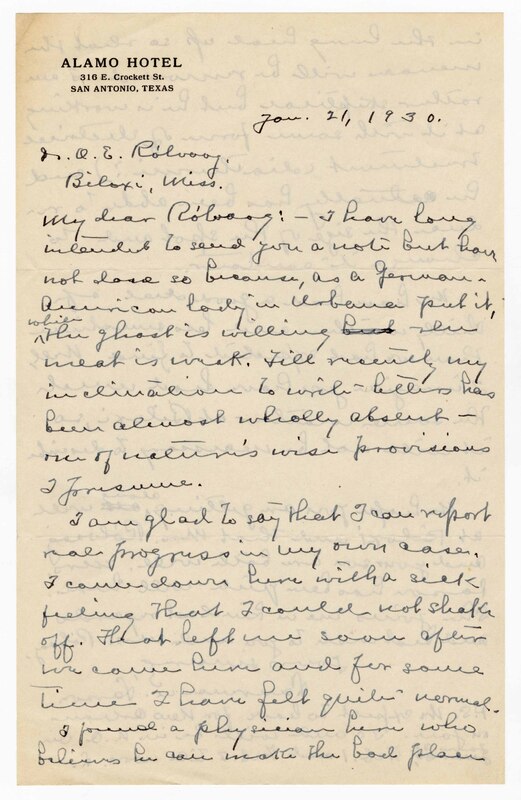 ALAMO HOTEL
316 E. Crockett St.
SAN ANTONIO, TEXAS
Jan. 21, 1930.
Dr. O. E. Rölvaag,
Biloxi, Miss.
My dear Rölvaag: - I have long
intended to send you a note but have
not done so because, as a German-
American lady in Urbana put it,
while
"The ghost is willing but the
meat is weak. Till recently my
inclination to write letters has
been almost wholly absent -
one of nature's wise provisions
I presume.
I am glad to say that I can report
real progress in my own case.
I came down here with a sick
feeling that I could not shake
off. That left me soon after
we came here and for some
time I have felt quite normal.
I found a physician here who
believes he can make the bad place